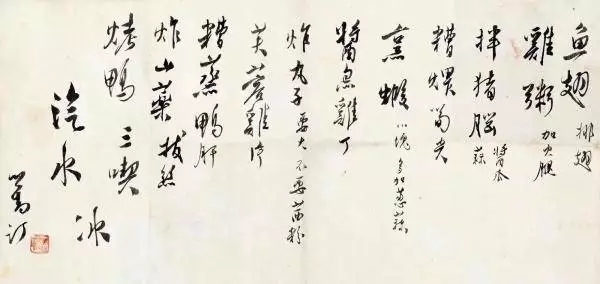 魚翅 排翅
雞粥 加火腿
拌豬腦 醬瓜 蒜
糟煨筍尖
烹蝦 多加蔥蒜
醬 雞丁
炸丸子 要大 不要 粉
芙蓉雞片
糟蒸鴨肝
炸山藥 拔絲
烤鴨 三喫
汽水 冰
心畬訂